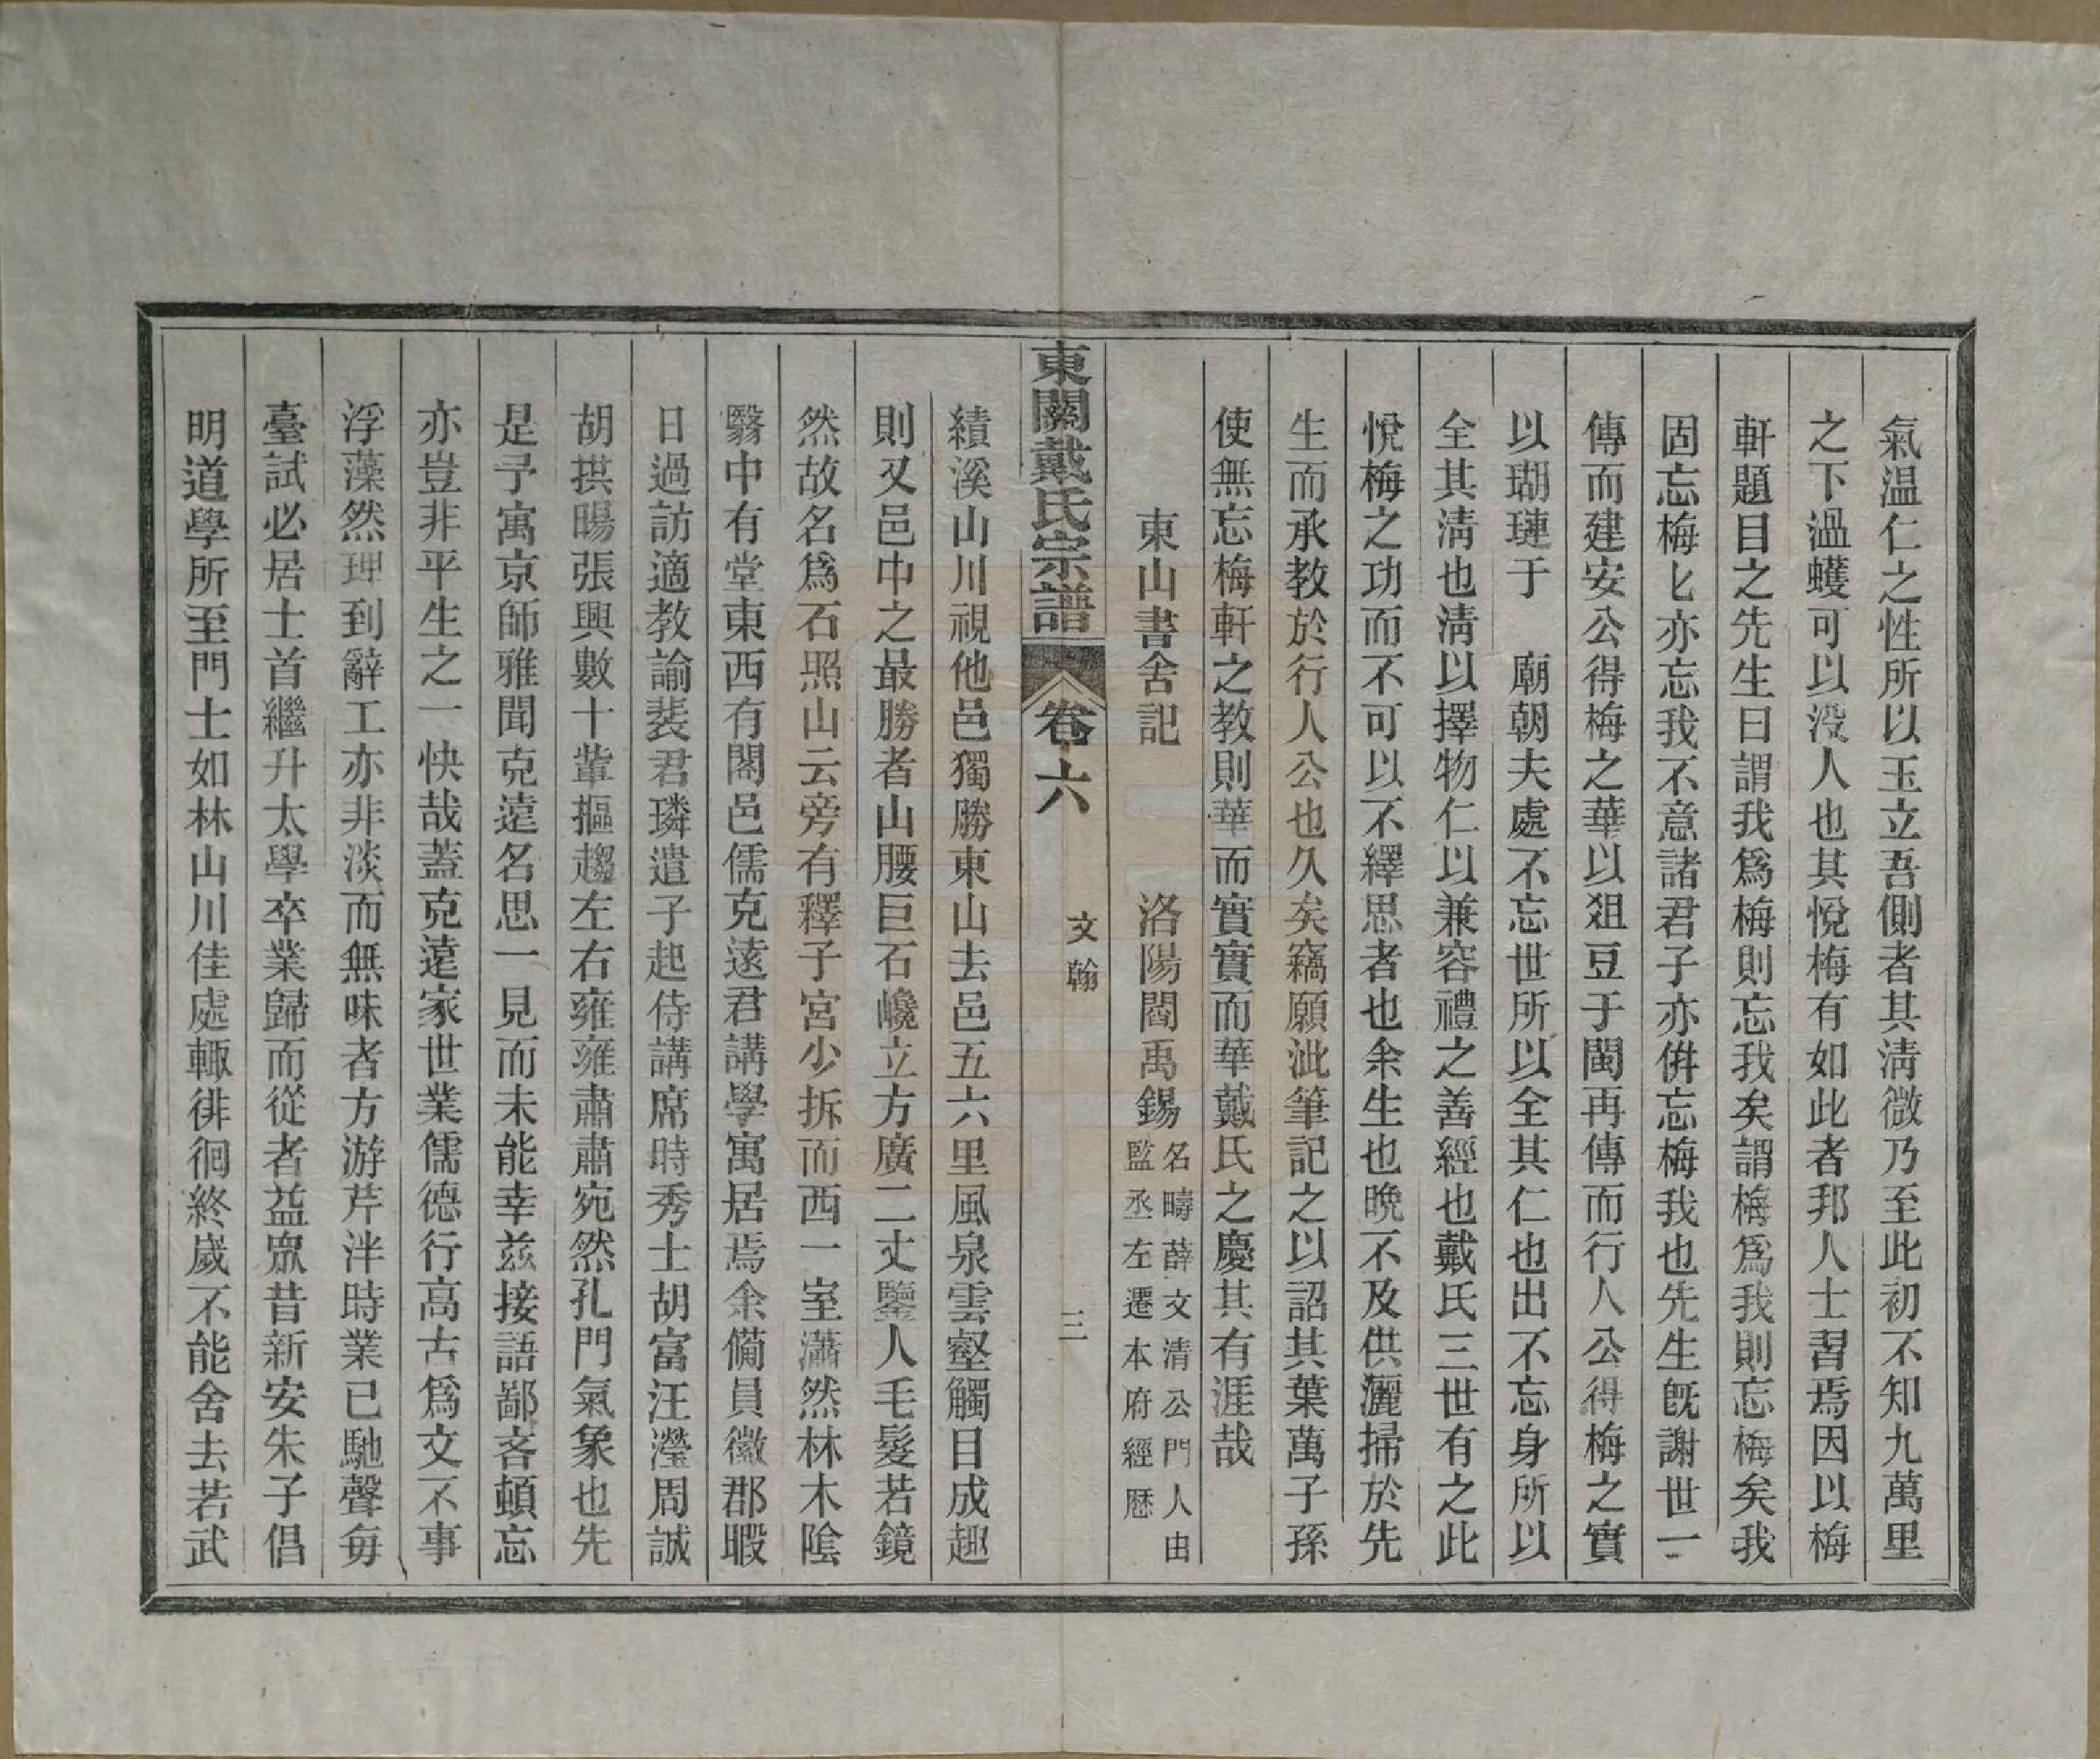 氣温仁之性所以玉立吾側者其淸微乃至此初不知九萬里
之下溫蠖可以没人也其悅梅有如此者邦人士習焉因以梅
軒題目之先生曰謂我爲梅則忘我矣謂梅爲我則忘梅矣我
固忘梅匕亦忘我不意諸君子亦倂忘梅我也先生旣謝世一
傳而建安公得梅之華以爼豆于閩再傳而行人公得梅之實
以瑚璉于　廟朝夫處不忘世所以全其仁也出不忘身所以
全其淸也淸以擇物仁以兼容禮之善經也戴氏三世有之此
悅梅之功而不可以不繹思者也余生也晩不及供灑掃於先
生而承教於行人公也久矣竊願泚筆記之以詔其葉萬子孫
使無忘梅軒之教則華而實實而華戴氏之慶其有涯哉
東山書舍記　洛陽閻禹錫 名疇薛文淸公門人由
監丞左遷本府經歷
東關戴氏宗譜　卷六　文翰　三
績溪山川視他邑獨勝東山去邑五六里風泉雲壑觸目成趣
則又邑中之最勝者山腰巨石巉立方廣二丈鑒人毛髮若鏡
然故名爲石照山云旁有釋子宮少拆而西一室瀟然林木陰
翳中有堂東西有閣邑儒克逺君講學寓居焉余備員徽郡暇
日過訪適教諭裴君璘遣子起侍講席時秀士胡富汪瀅周誠
胡拱暘張興數十輩摳趨左右雍雍肅肅宛然孔門氣象也先
是予寓京師雅聞克逺名思一見而未能幸玆接語鄙吝頓忘
亦豈非平生之一快哉蓋克逺家世業儒德行高古爲文不事
浮藻然理到辭工亦非淡而無味者方游芹泮時業已馳聲每
臺試必居士首繼升太學卒業歸而從者益眾昔新安朱子倡
明道學所至門士如林山川佳處輙徘徊終歲不能舍去若武